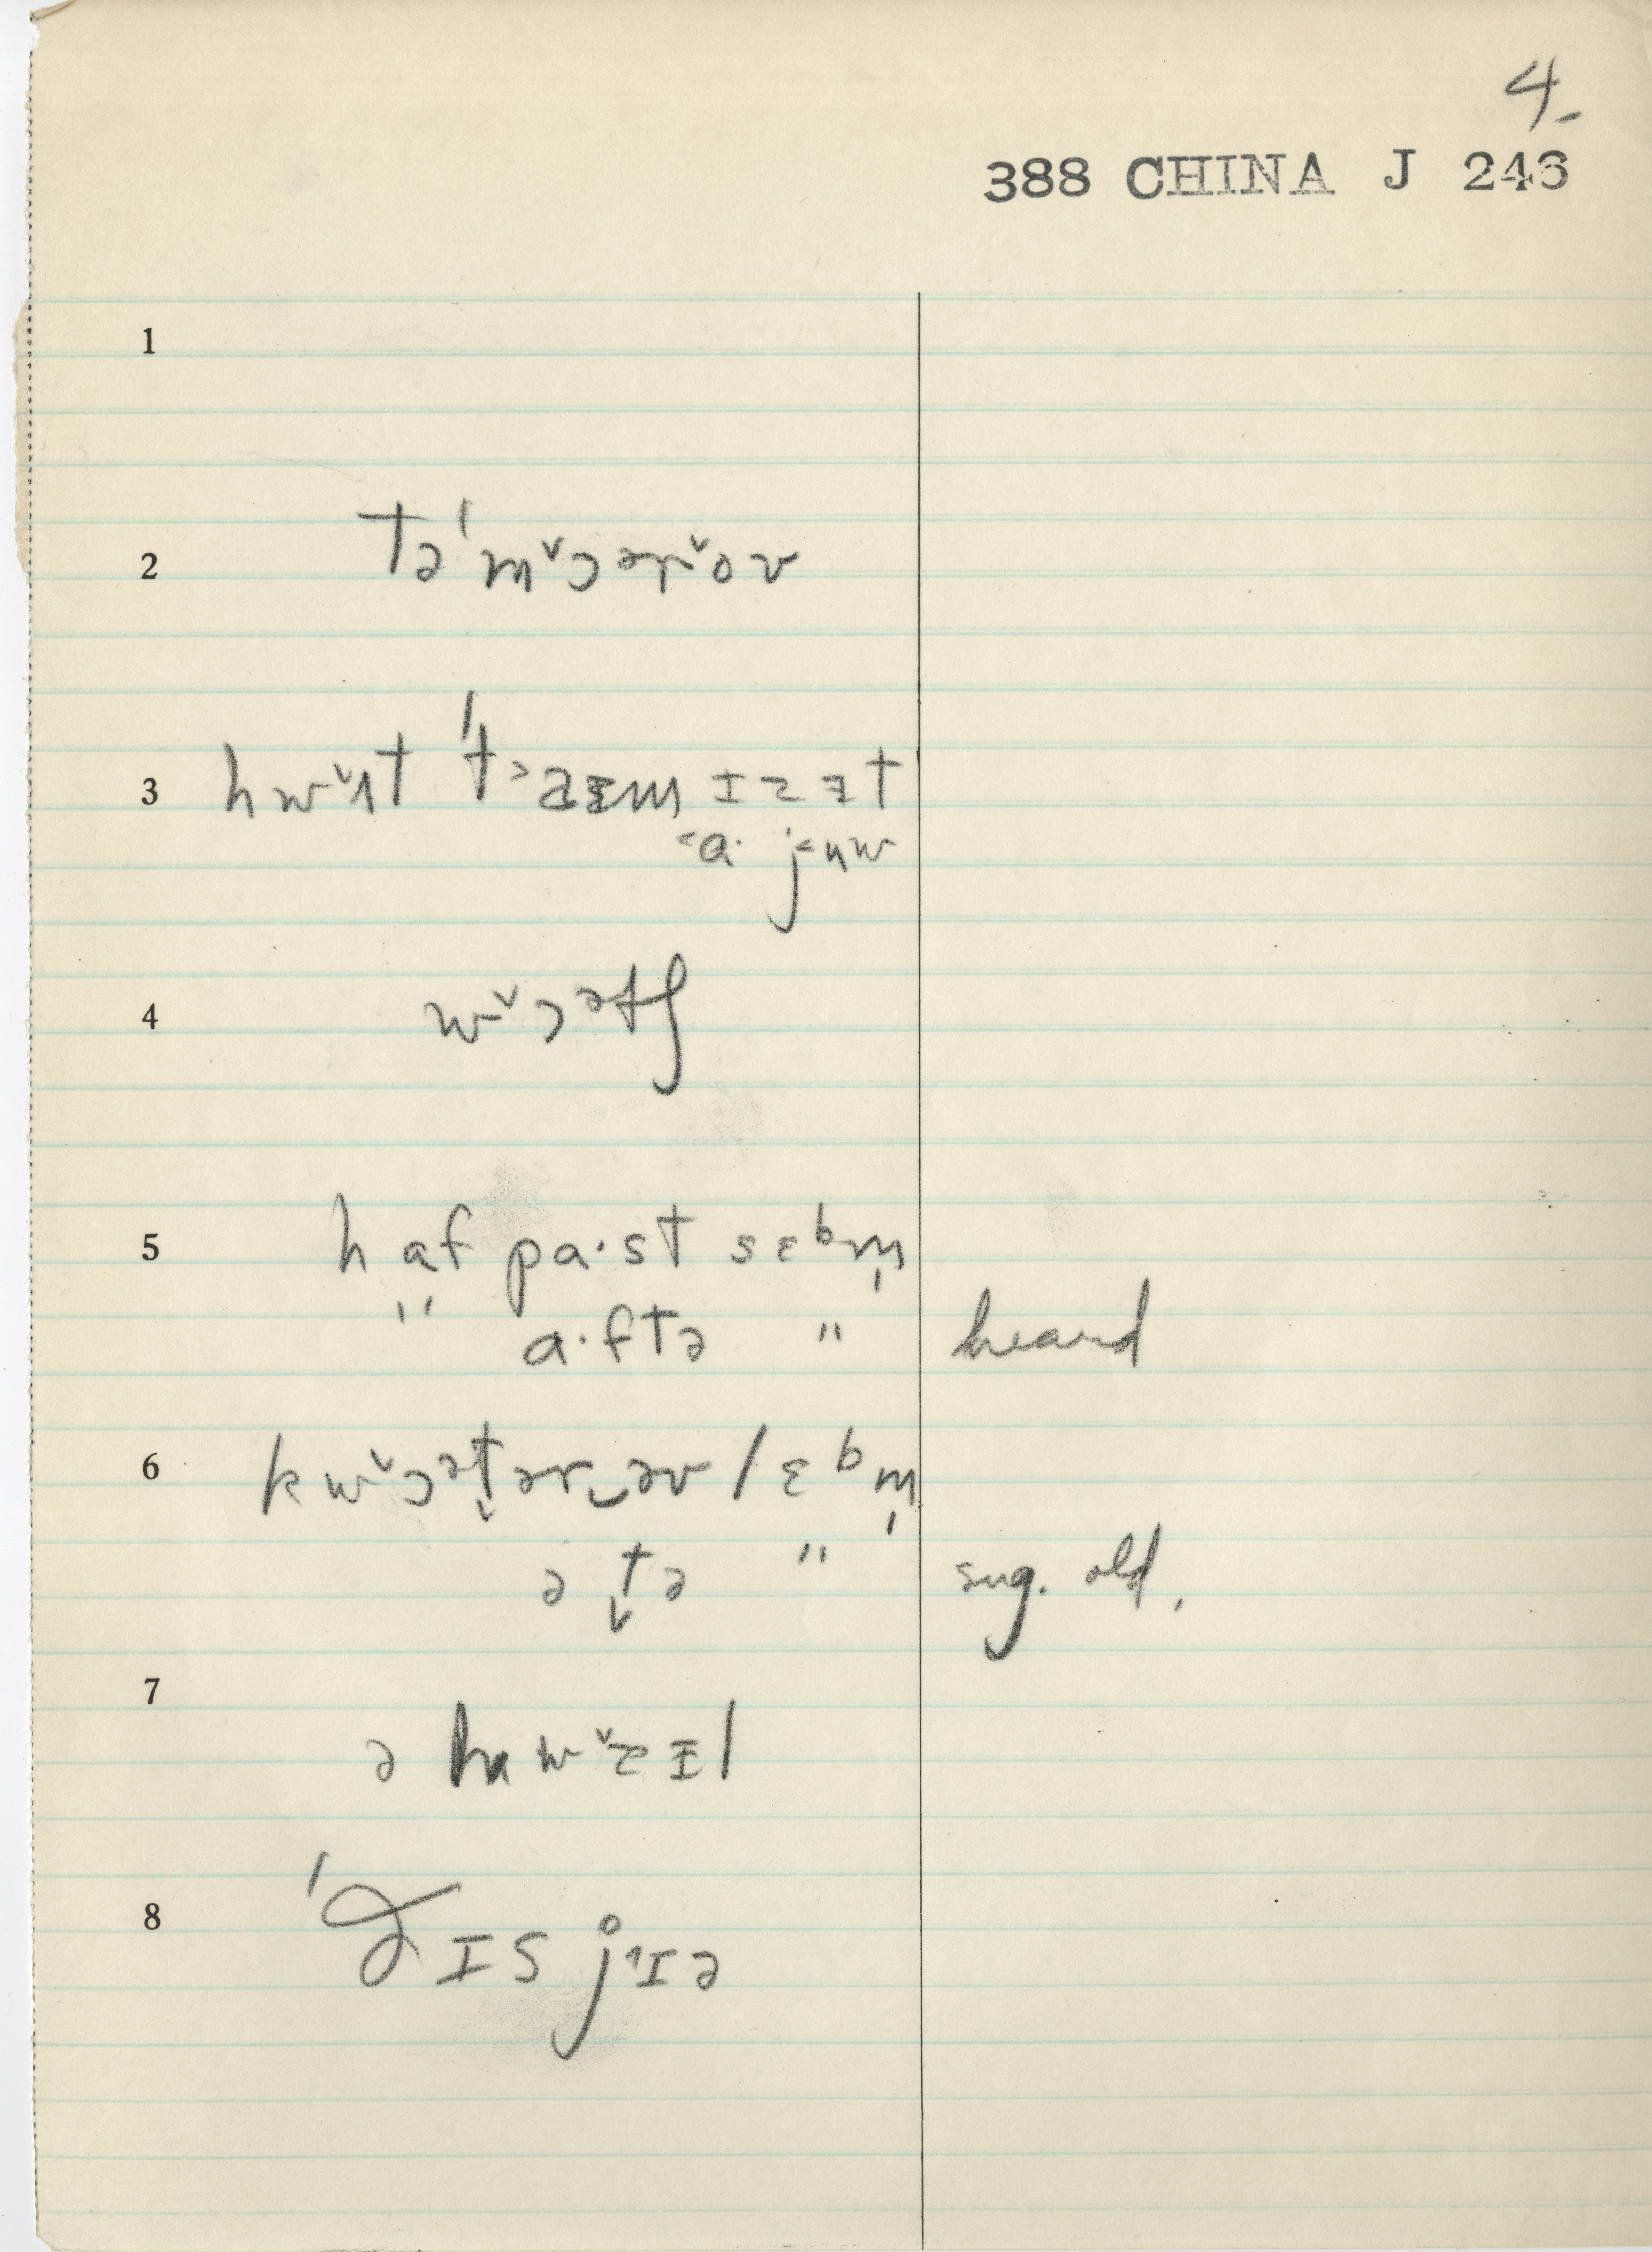 4-
388 CHINA J 246
1
2 tə'm˅ɔər˅ov
3 hw˅ɪt 't˃aᵻm ɪz ɪt
˂a· j˂ʉw
4 w˅ɔətʃ
5 haf pa·st sɛᵇm̩
" a·ftə " heard
6 kw˅ɔət̬ər‿əv /ɛᵇm̩
ə t̬ə " sug. old.
7 ə hw˅zᵻl
8 'ðɪs j˄ɪə